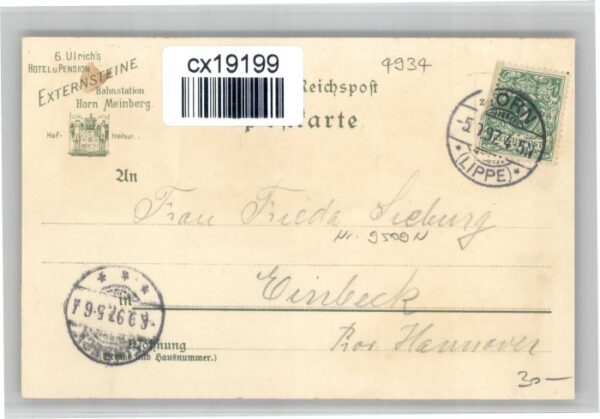 G. Ulrich's
HOTEL u. PENSION
EXTERNSTEINE
Bahnstation
Horn Meinberg.
Hof-
cx19199
4934
Reichspost
Postkarte
HORN
97.4-5
*(LIPPE)*
An
Frau Frieda Sieburg
Nr. 9509 N
in Einbeck
97.5-6
Wohnung
(Straße und Hausnummer.)
Prov Hannover
30-